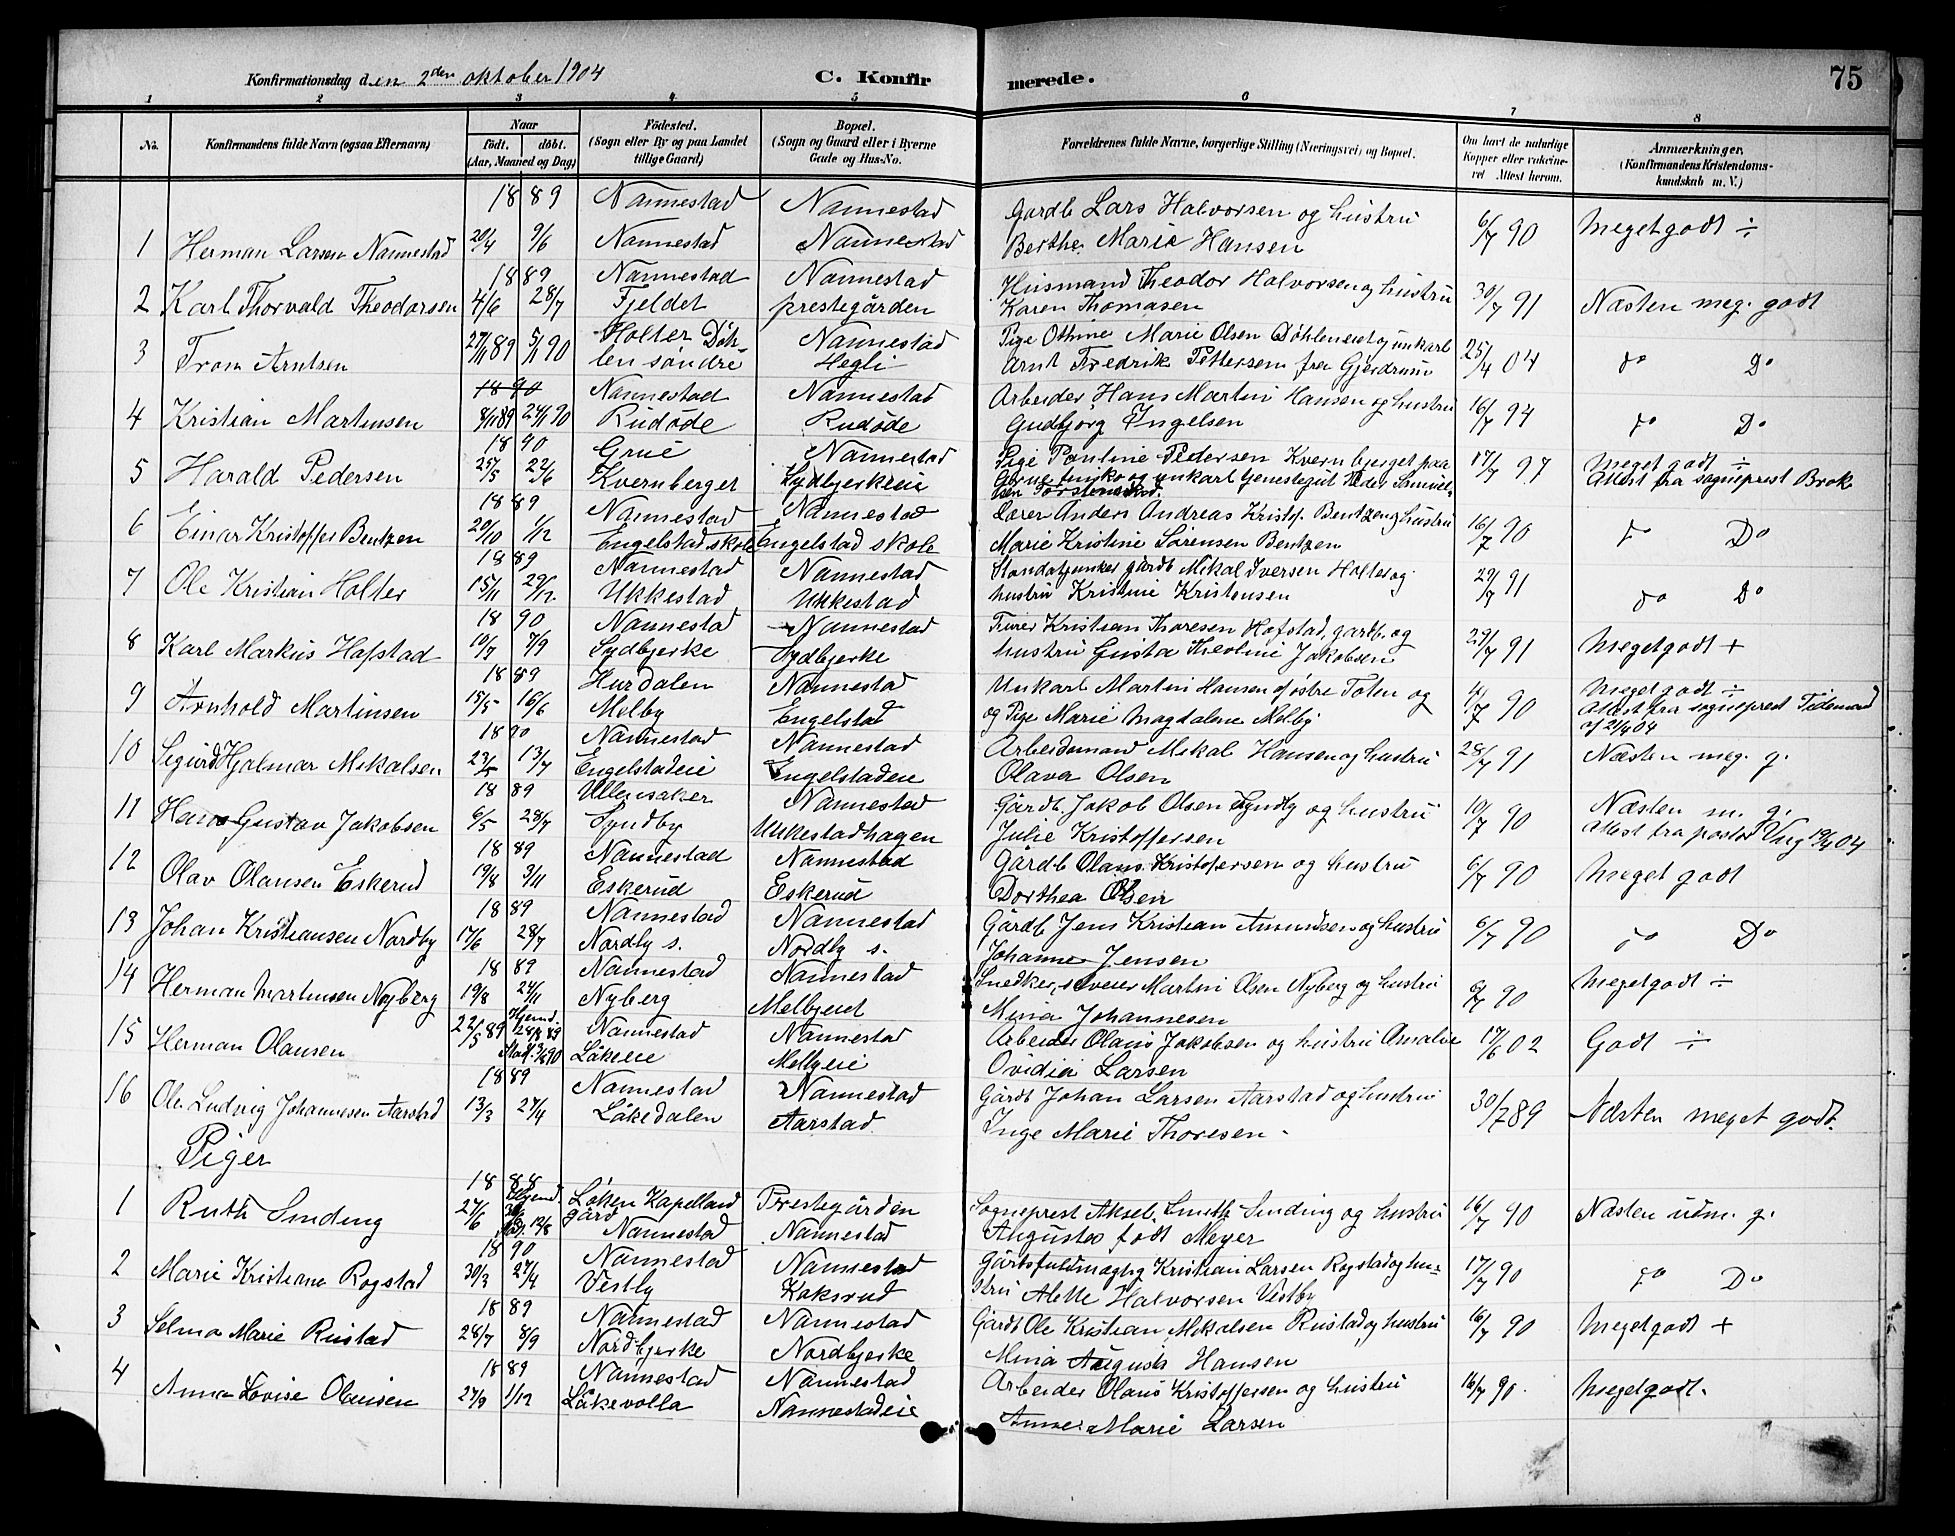 Konfirmationsdag den 2den oktober 1904 C. Konfirmerede. 75
1 2 3 4 5 6 7 8
No. Konfirmandens fulde Navn (ogsaa Efternavn) Naar født. døbt. (Aar, Maaned og Dag) Fødested. (Sogn eller By og paa Landet tillige Gaard) Bopæl. (Sogn og Gaard eller i Byerne Gade og Hus-No. Forældrenes fulde Navne, borgerlige Stilling (Næringsvei) og Bopæl. Om havt de naturlige Kopper eller vakcineret Attest herom. Anmærkninger, (Konfirmandens Kristendomskundskab m. V.)
1889 Nannestad Nannestad Gardb Lars Halvorsen og hustru
1 Herman Larsen Nannestad 20/4 9/6 Nannestad Nannestad Berthe Marie Hansen 6/7 90 Meget godt ÷
1889 Nannestad Nannestad Husmand Theodor Halvorsen og hustru
2 Karl Thorvald Theodorsen 4/6 28/7 Fjeldet prestegården Karen Thomasen 30/7 91 Næsten meg. godt
27/11 89 5/1 90 Holter Døh- Nannestad Pige Othine Marie Olsen Døhleneiet og unkarl
3 Trom Arntsen len søndre Hegli Arnt Fredrik Pettersen fra Gjerdrum 25/4 04 do Do
1890 Nannestad Nannestad Arbeider Hans Martin Hansen og hustru
4 Kristian Martinsen 8/11 89 24/1 90 Rudøde Rudøde Gudbjørg Ingelsen 16/7 94 do Do
1890 Grue Nannestad Pige Pauline Pedersen Kvernbjerget paa
5 Harald Pedersen 25/5 22/6 Kvernberget Sydbjerkeeie Grue finsko og unkarl tjenestegut Peder 17/7 97 Meget godt ÷ Attest fra sogneprest Brok
1889 Nannestad Nannestad Lærer Anders Andreas Kristof. Bentzen og hustru
6 Einar Kristoffer Bentzen 20/10 1/12 Engelstad skole Engelstad skole Marie Kristine Sørensen Bentzen 16/7 90 do Do
1889 Nannestad Nannestad gårdb Mikal Iversen Holter og
7 Ole Kristian Holter 15/11 29/12 Ukkestad Ukkestad hustru Kristine Kristensen 29/7 91 do Do
1890 Nannestad Nannestad Kristian Thoresen Hafstad, gardb. og
8 Karl Markus Hafstad 10/7 7/9 Sydbjerke Sydbjerke hustru Gusta Theoline Jakobsen 29/7 91 Meget godt +
1889 Hurdalen Nannestad Unkarl Martin Hansen af østre Toten og
9 Arnhold Martinsen 15/5 16/6 Melby Engelstad og Pige Marie Magdalene Melby 90 Meget godt ÷ Attest fra sogneprest Tidemand af 21/4 04
1890 Nannestad Nannestad Arbeidsmand Mikal Hansen og hustru
10 Sigurd Hjalmar Mikalsen 23/5 13/7 Engelstadeie Engelstadeie Olava Olsen 28/7 91 Næsten meg. g.
1889 Ullensaker Nannestad Gårdb. Jakob Olsen Syndby og hustru
11 Hans Gustav Jakobsen 6/5 28/7 Syndby Ukkestadhagen Julie Kristoffersen 10/7 90 Næsten m. g. Attest fra pastor Vaug 19/4 04
1889 Nannestad Nannestad Gårdb Olaus Kristofersen og hustru
12 Olav Olausen Eskerud 19/8 3/11 Eskerud Eskerud Dorthea Olsen 6/7 90 Meget godt
1889 Nannestad Nannestad Gårdb Jens Kristian Amundsen og hustru
13 Johan Kristiansen Nordby 17/6 28/7 Nordby s. Nordby s. Johanne Jensen 6/7 90 do Do
1889 Nannestad Nannestad Snedker, Martin Olsen Nyberg og hustru
14 Herman Martinsen Nyberg 19/8 24/11 Nyberg Melbyeiet Mina Johannesen 90 Meget godt ÷
22/5 89 Hjemd. 28/8 89 Nannestad Nannestad Arbeider Olaus Jakobsen og hustru Amalie
15 Herman Olausen 90 Låkeeie Melbyeie Ovidia Larsen 17/6 02 Godt ÷
1889 Nannestad Nannestad Gårdb Johan Larsen Aarstad og hustru
16 Ole Ludvig Johannesen Aarstad 13/3 27/4 Låkedalen Aarstad Inge Marie Thoresen 30/7 89 Næsten meget godt.
Piger
1888 Løken Kapellangård Prestegården Sogneprest Aksel Smith Sinding og hustru
1 Ruth Sinding 27/6 Hjemd. 12/8 Nannestad Nannestad Augusta født Meyer 16/7 90 Næsten udm. g.
1890 Nannestad Nannestad Gårdsfuldmægtig Kristian Larsen Rogstad og hu-
2 Marie Kristiane Rogstad 30/3 27/4 Vestby Koksrud stru Alette Halvorsen Vestby 17/7 90 do Do
1889 Nannestad Nannestad Gårdb Ole Kristian Mikalsen Rustad og hustru
3 Selma Marie Rustad 28/7 8/9 Nordbjerke Nordbjerke Mina Augusta Hansen 16/7 90 Meget godt +
1889 Nannestad Nannestad Arbeider Olaus Kristoffersen og hustru
4 Anna Lovise Olausen 27/9 1/12 Låkevolla Nannestadeie Anne Marie Larsen 16/7 90. Meget godt.